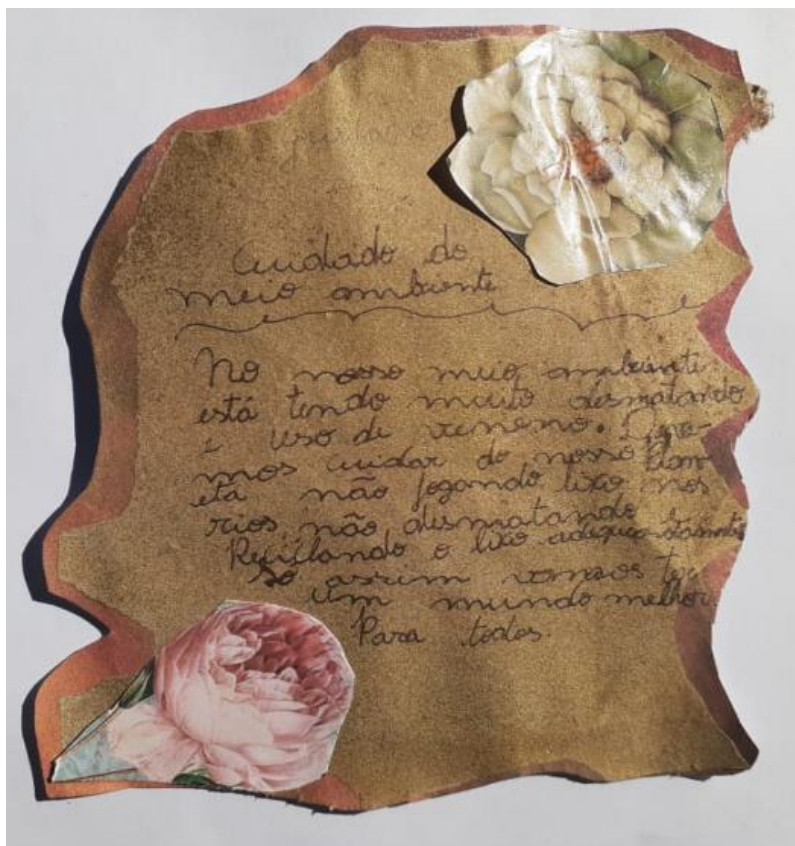 Cuidado do
meio ambiente
No nosso meio ambiente
está tendo muito desmatando
e uso de veneno. Deve-
mos cuidar do nosso plan
eta não jogando lixo nos
rios, não desmatando
Reciclando o lixo adequadamente
só assim vamos ter
um mundo melhor
Para todos.